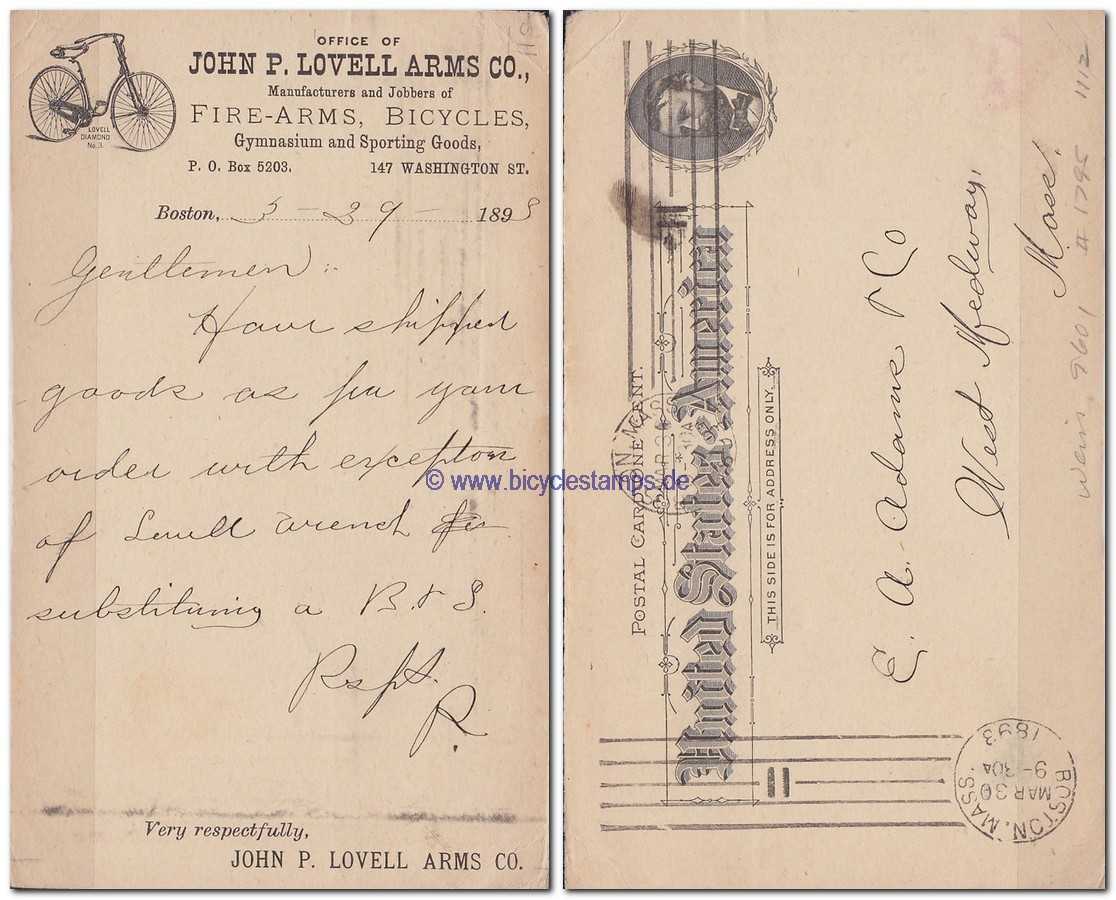 OFFICE OF
JOHN P. LOVELL ARMS CO.,
Manufacturers and Jobbers of
FIRE-ARMS, BICYCLES,
Gymnasium and Sporting Goods,
P. O. Box 5203. 147 WASHINGTON ST.
LOVELL
DIAMOND
No. 3.
Boston, 3 - 29 - 1893
Gentlemen:
Have shipped
goods as per your
order with exception
of Lovell wrench
substituting a B. & S.
Respt.
R.
Very respectfully,
JOHN P. LOVELL ARMS CO.
© www.bicyclestamps.de
POSTAL CARD ONE CENT.
United States of America
THIS SIDE IS FOR ADDRESS ONLY.
E. A. Adams & Co
West Medway,
Mass.
BOSTON, MASS.
MAR 30
9-30A
1893